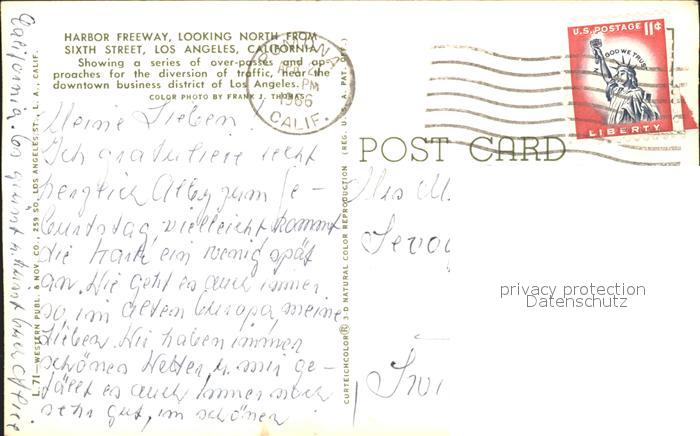 HARBOR FREEWAY, LOOKING NORTH FROM
SIXTH STREET, LOS ANGELES, CALIFORNIA
Showing a series of over-passes and ap-
proaches for the diversion of traffic, near the
downtown business district of Los Angeles.
COLOR PHOTO BY FRANK J. THOMAS
POMONA
PM
1966
CALIF.
U.S. POSTAGE 11¢
IN GOD WE TRUST
LIBERTY
POST CARD
L.71—WESTERN PUBL. & NOV. CO., 259 SO. LOS ANGELES ST., L. A., CALIF.
CURTEICHCOLOR® 3-D NATURAL COLOR REPRODUCTION (REG. U. S. A. PAT. OFF.)
Meine Lieben
Ich gratuliere recht
herzlich Alby zum Ge-
burtstag, vielleicht kommt
die Karte ein wenig spät
an. Wie geht es auch immer
so im alten Europa, meine
Lieben. Wir haben immer
schönes Wetter, u. mir ge-
fällt es auch immer noch
sehr gut, im schönen
California.
privacy protection
Datenschutz